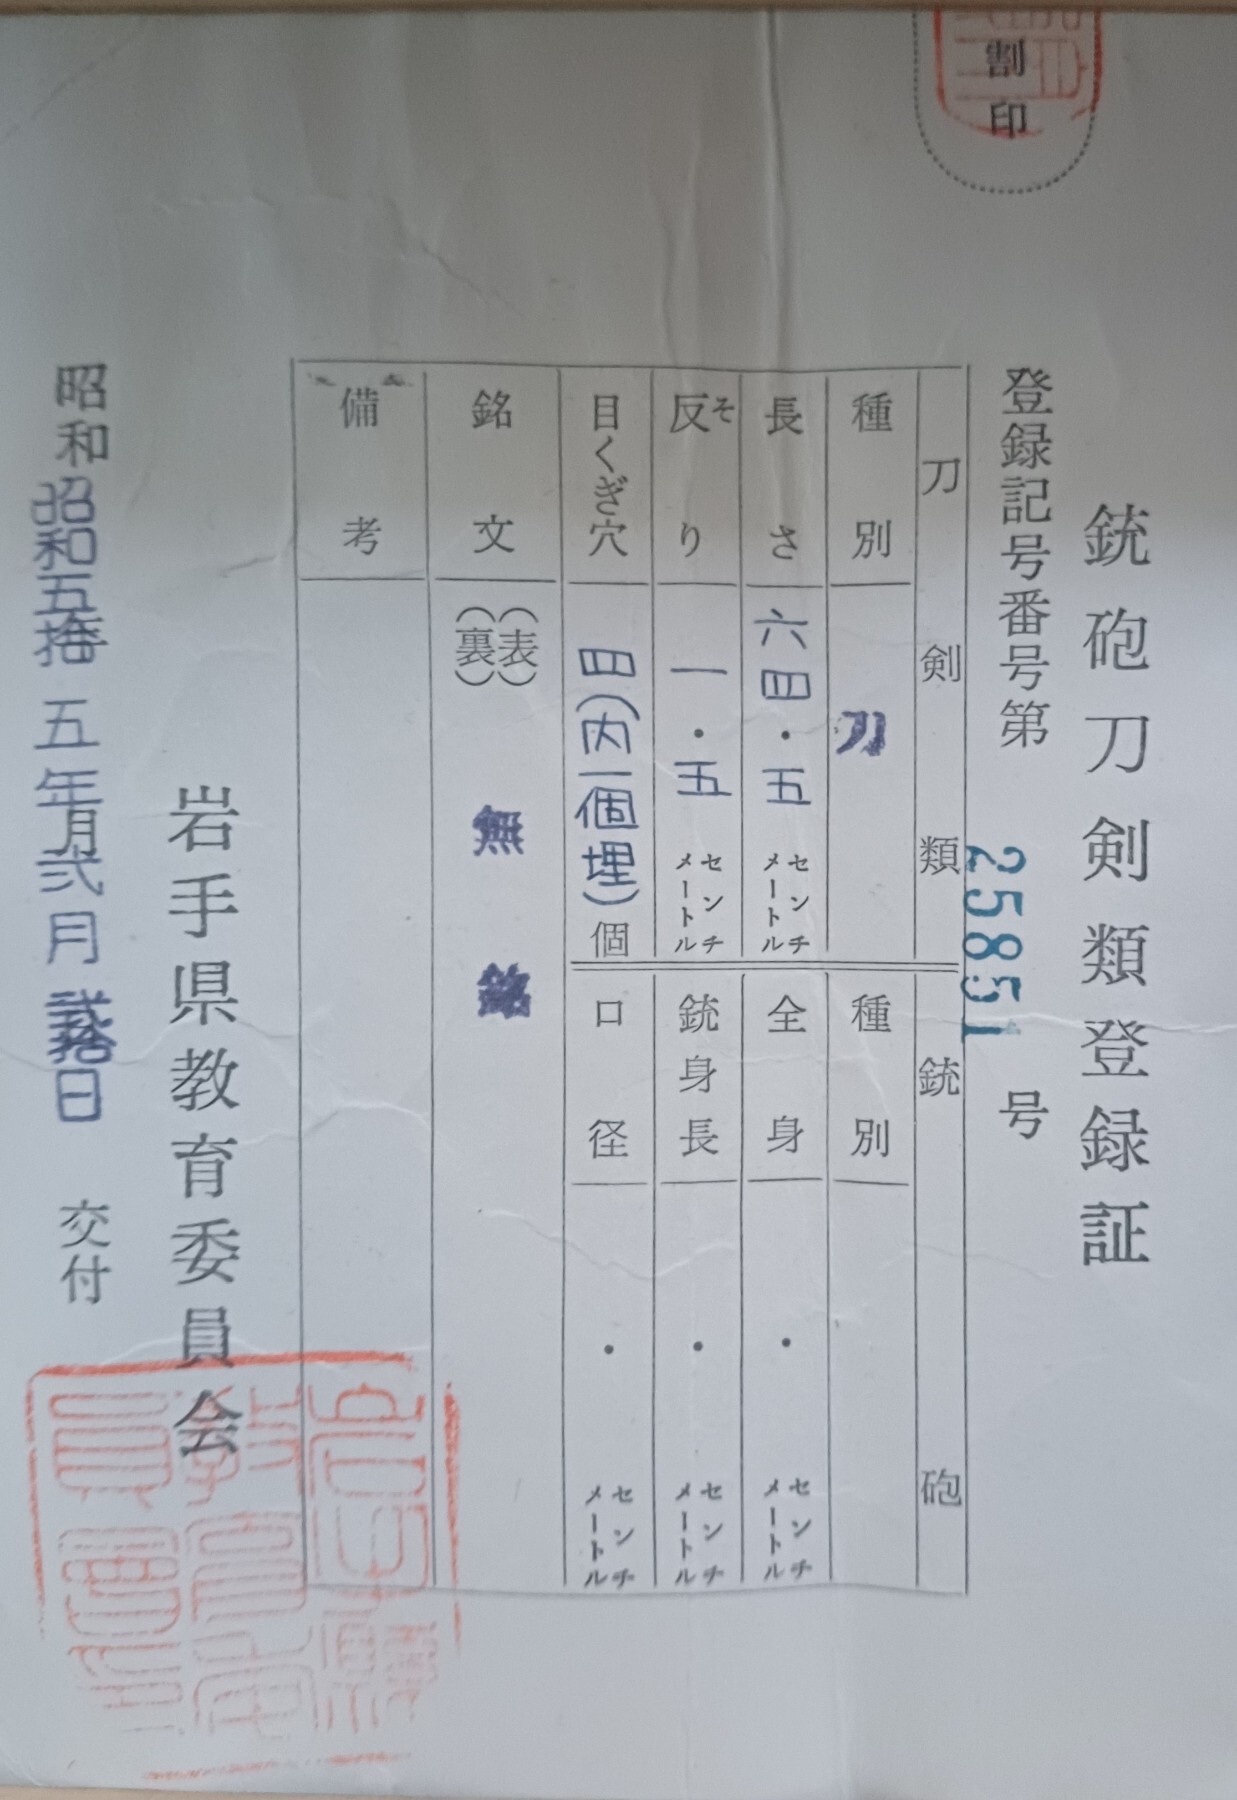 割印
銃砲刀剣類登録証
登録記号番号第 25851 号
刀剣類
種別 刀
長さ 六四・五 センチメートル
反り そ 一・五 センチメートル
目くぎ穴 四(内一個埋)個
銃砲
種別
全身 ・ センチメートル
銃身長 ・ センチメートル
口径 ・ センチメートル
銘文 (表) (裏) 無銘
備考
岩手県教育委員会
昭和 昭和五拾五年月弐月弐拾日 交付